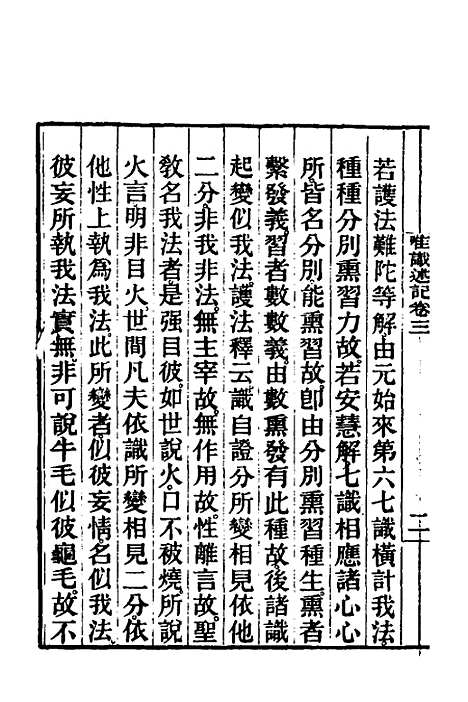 唯識述記卷三
若護法難陀等解由元始來第六七識橫計我法。
種種分別熏習力故。若安慧解七識相應諸心心
所皆名分別能熏習故。卽由分別熏習種生。熏者
繫發義。習者數數義。由數熏發有此種故。後諸識
起變似我法。護法釋云識自證分所變相見依他
二分非我非法。無主宰故。無作用故。性離言故。聖
敎名我法者是强目彼。如世說火。口不被燒。所說
火言明非目火世間凡夫依識所變相見二分。依
他性上執爲我法。此所變者似彼妄情。名似我法
彼妄所執我法實無。非可說牛毛似彼龜毛。故不